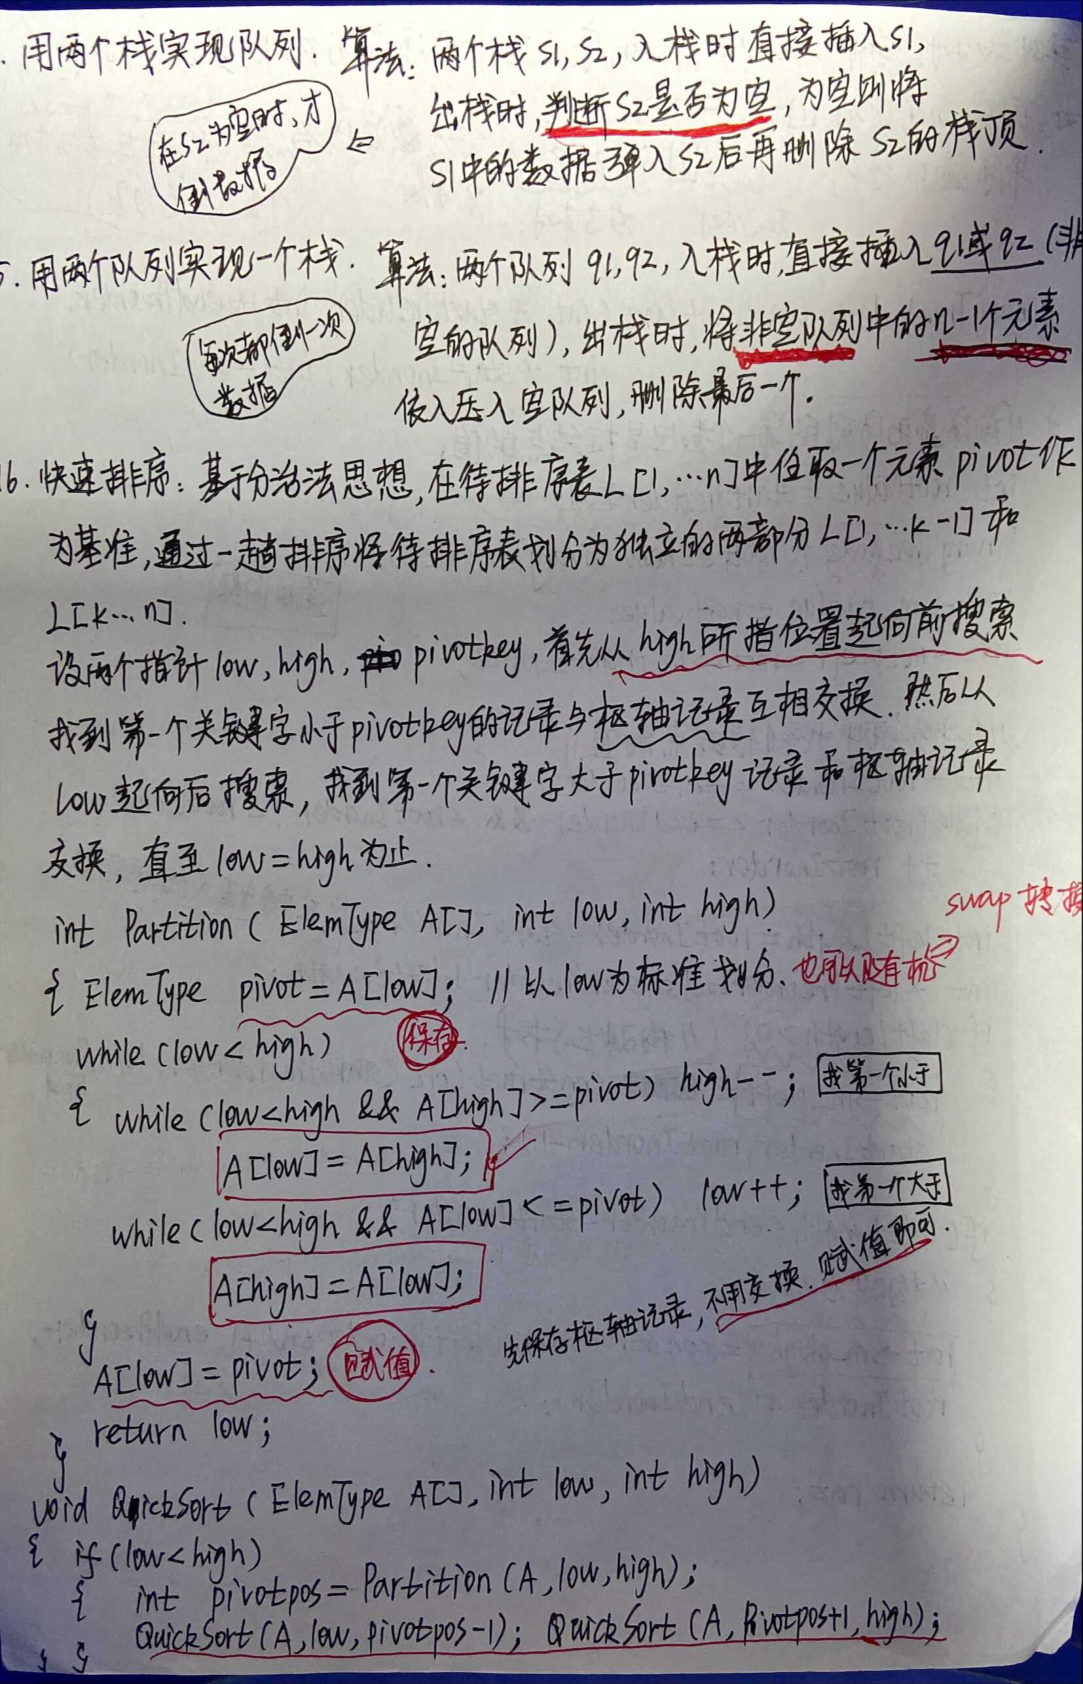 . 用两个栈实现队列. 算法: 两个栈 S1, S2, 入栈时直接插入S1,
出栈时, 判断S2是否为空, 为空则将
S1中的数据弹入S2后再删除 S2的栈顶.
在S2为空时, 才
倒数据
5. 用两个队列实现一个栈. 算法: 两个队列 q1, q2, 入栈时, 直接插入q1或q2 (非
空的队列), 出栈时, 将非空队列中的n-1个元素
依入压入空队列, 删除最后一个.
每次都倒一次
数据
16. 快速排序: 基于分治法思想, 在待排序表L[1, …n]中任取一个元素 pivot作
为基准, 通过一趟排序将待排序表划分为独立的两部分L[1, …k-1] 和
L[k…n].
设两个指针 low, high, pivotkey, 首先从 high所指位置起向前搜索
找到第一个关键字小于pivotkey的记录与枢轴记录互相交换. 然后从
low起向后搜索, 找到第一个关键字大于pivotkey记录和枢轴记录
交换, 直至low=high为止.
int Partition ( ElemType A[], int low, int high)
swap 转换
{ ElemType pivot = A[low]; // 以low为标准划分. 也可以随有机
while (low < high) 保存.
{ while (low<high && A[high]>=pivot) high--; 找第一个小于
A[low] = A[high];
while ( low<high && A[low] <=pivot) low++; 找第一个大于
A[high] = A[low];
}
先保存枢轴记录, 不用交换. 赋值即可.
A[low] = pivot; 赋值.
return low;
}
void QuickSort ( ElemType A[], int low, int high)
{ if (low<high)
{ int pivotpos = Partition (A, low, high);
QuickSort (A, low, pivotpos-1); QuickSort (A, Pivotpos+1, high);
} }